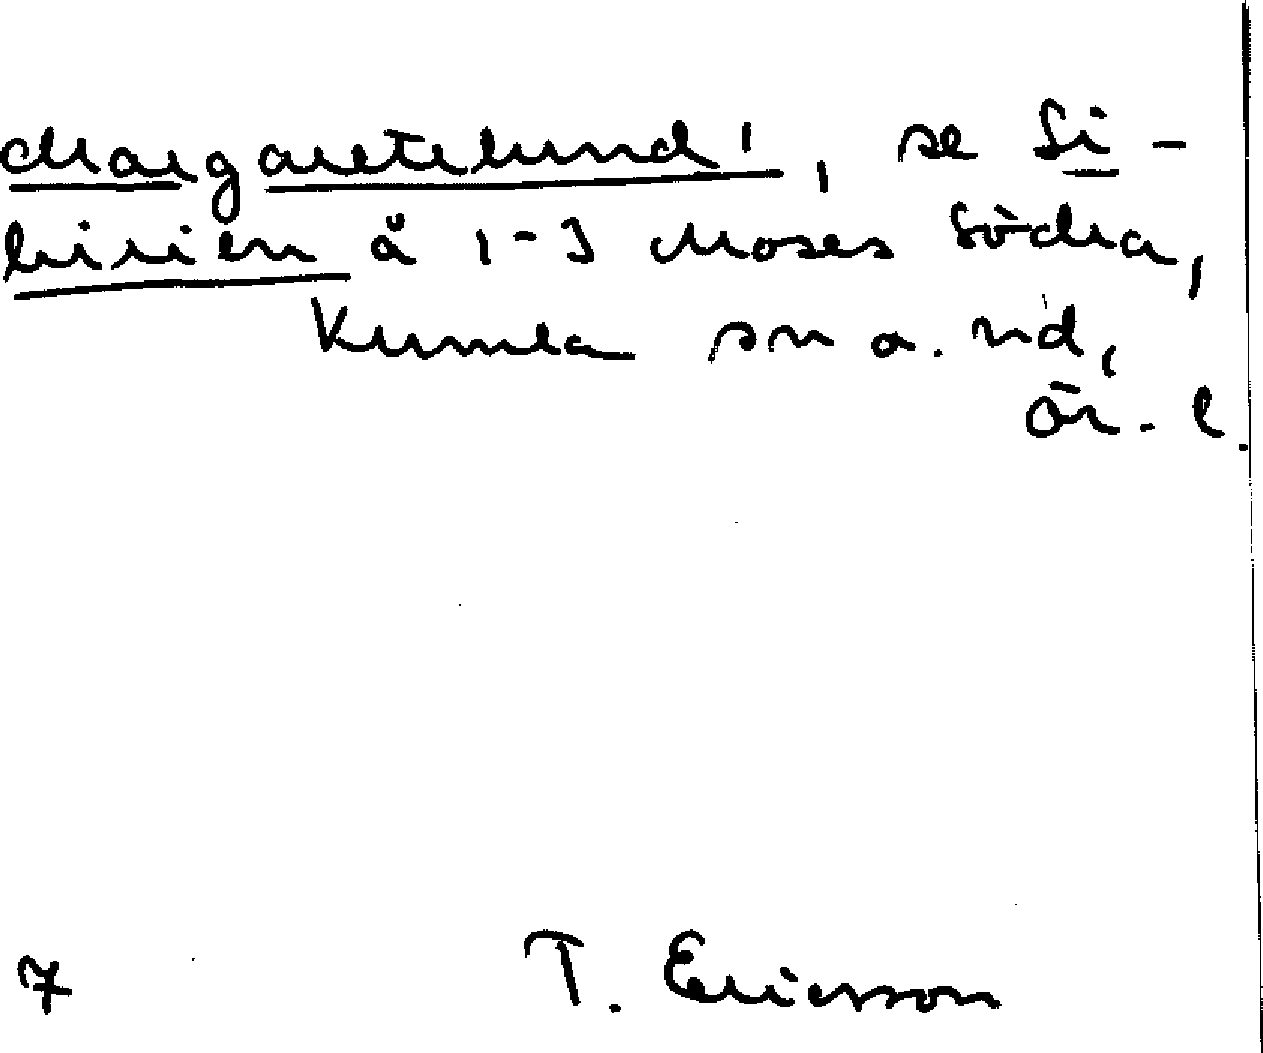 Margaretelund', se Si-
birien å 1-3 Moses Södra,
Kumla sn o. hd,
Ör. l.
7 T. Ericsson